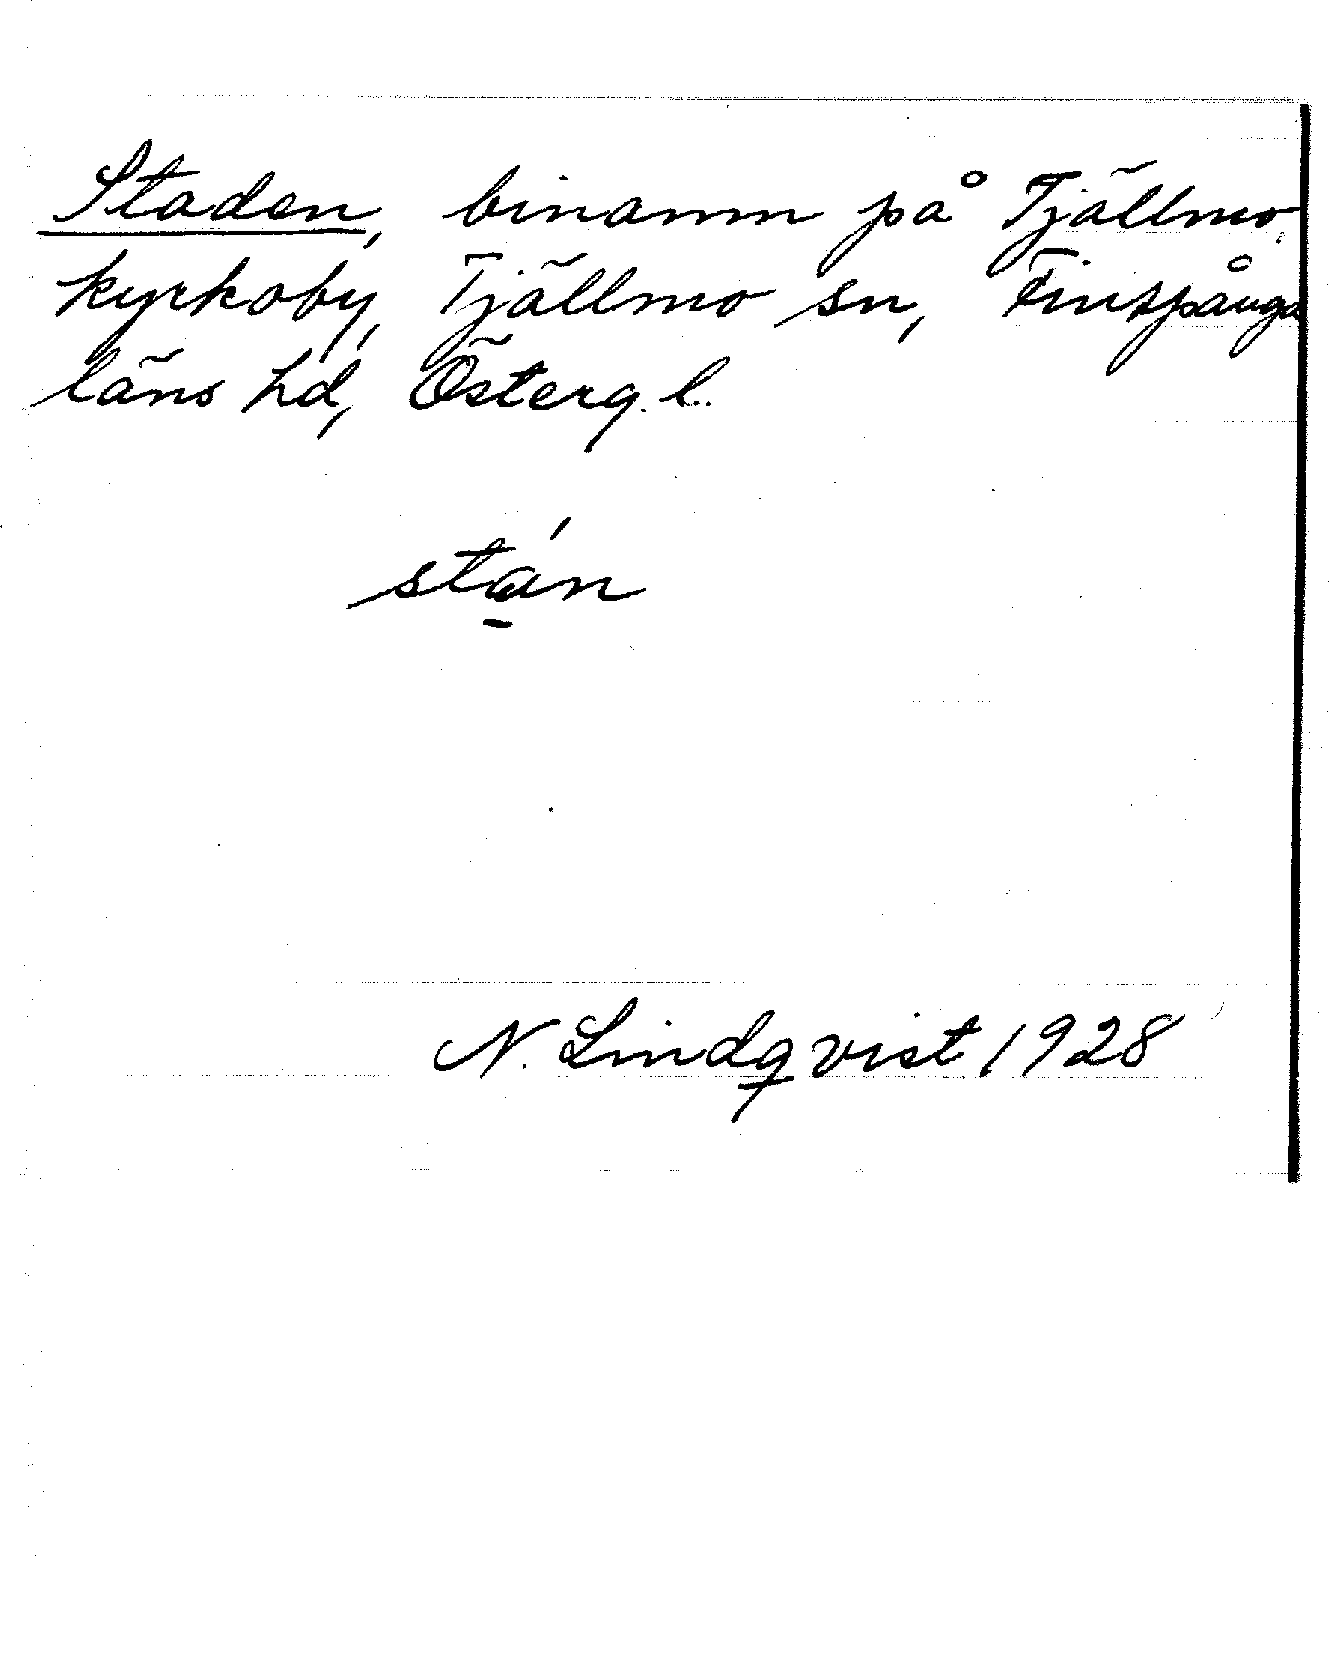 Staden, binamn på Tjällmo
kyrkoby, Tjällmo sn, Finspånga
läns hd, Österg. l.
stá̱n
N. Lindqvist 1928